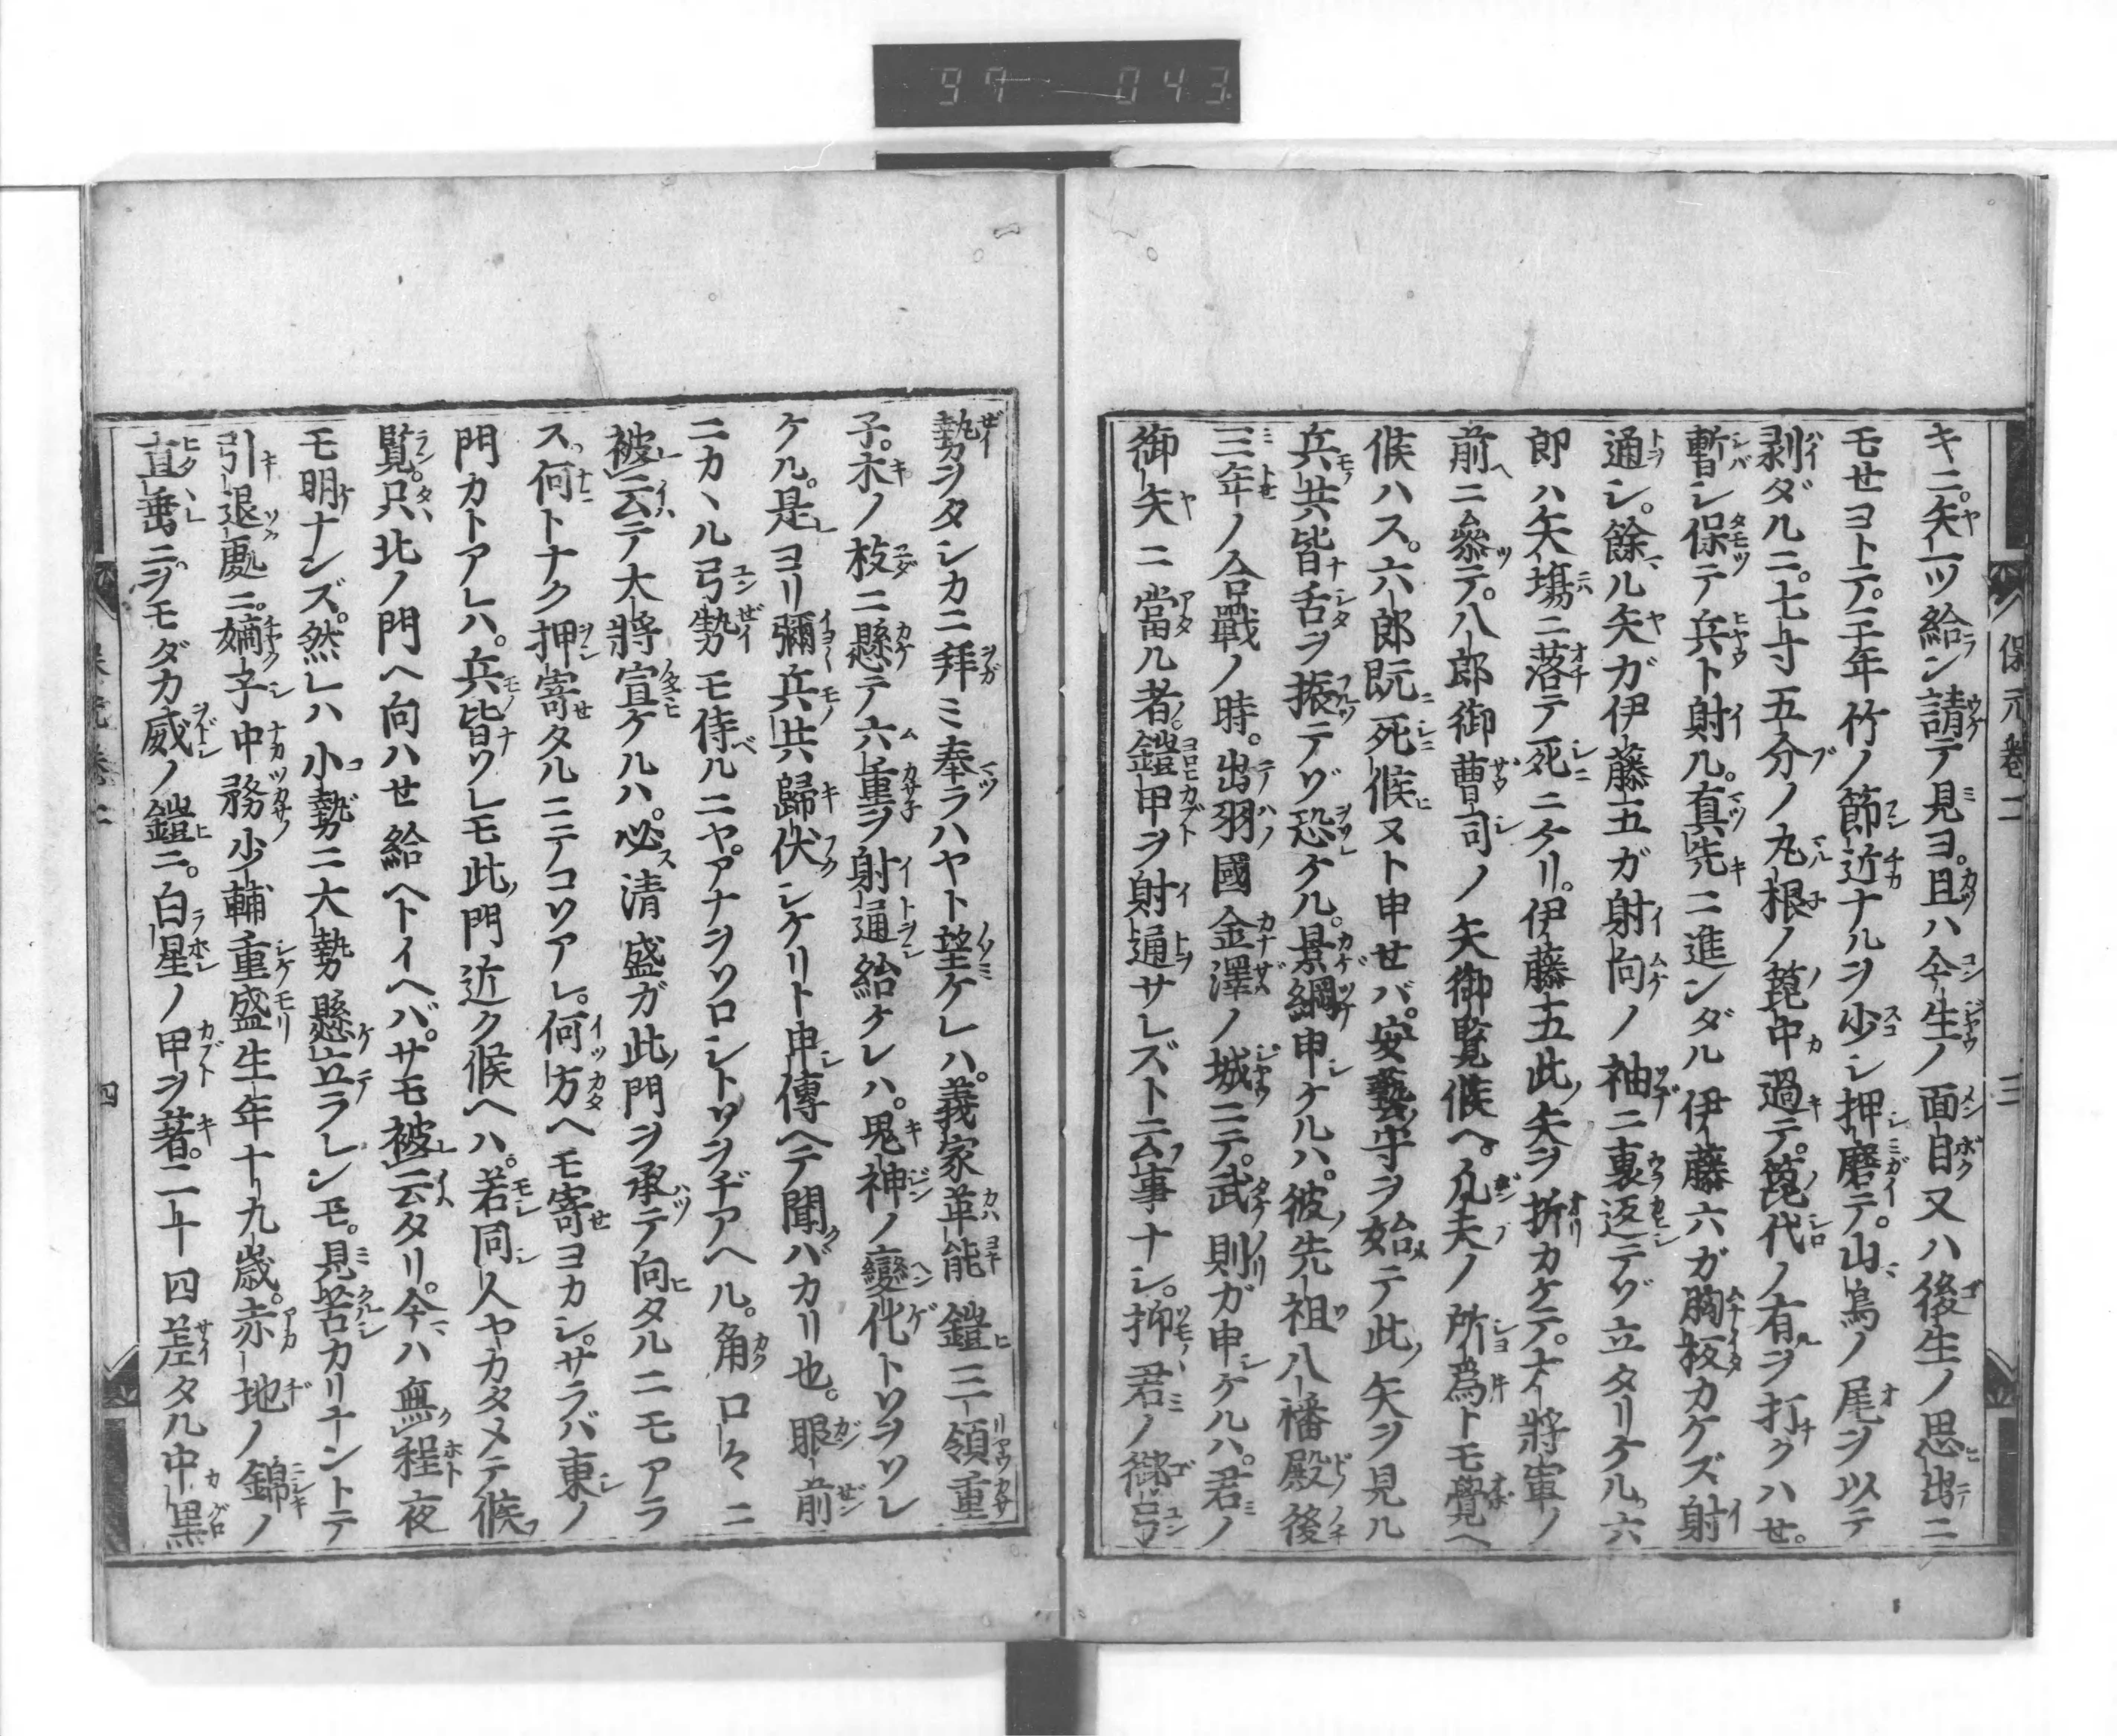 97 043
保元巻二
三
キニ。矢一ツ給ン請テ見ヨ。且ハ今生ノ面目又ハ後生ノ思出ニ
モせヨトテ。三年竹ノ節近ナルヲ少シ押磨テ。山鳥ノ尾ヲ以テ
剥ダルニ。七寸五分ノ丸根ノ箆中過テ。箆代ノ有ヲ打クハせ。
暫シ保テ兵ト射ル。真先ニ進ンダル伊藤六ガ胸板カケズ射
通シ。餘ル矢ガ伊藤五ガ射向ノ袖ニ裏返テゾ立タリケル。六
郎ハ矢場ニ落テ死ニケリ。伊藤五此矢ヲ折カケテ。大將軍ノ
前ニ參テ。八郎御曹司ノ矢御覧候ヘ。凡夫ノ所為トモ覺ヘ
候ハス。六郎既死候ヌト申せバ。安藝守ヲ始テ此矢ヲ見ル
兵共皆舌ヲ振テゾ恐ケル。景綱申ケルハ。彼先祖八幡殿後
三年ノ合戰ノ時。出羽國金澤ノ城ニテ。武則ガ申ケルハ。君ノ
御矢ニ當ル者。鎧甲ヲ射通サレズト云事ナシ。抑君ノ御弓
勢ヲタシカニ拜ミ奉ラハヤト望ケレハ。義家革能鎧三領重
子。木ノ枝ニ懸テ六重ヲ射通給ケレハ。鬼神ノ變化トソヲソレ
ケル。是ヨリ彌兵共歸伏シケリト申傳ヘテ聞バカリ也。眼前
ニカヽル弓勢モ侍ルニヤ。アナヲソロシトソヲヂアヘル。角口々ニ
被云テ大將宣ケルハ。必清盛ガ此門ヲ承テ向タルニモアラ
ス。何トナク押寄タルニテコソアレ。何方ヘモ寄ヨカシ。サラバ東ノ
門カトアレハ。兵皆ソレモ此門近ク候ヘハ。若同人ヤカタメテ候
覧。只北ノ門ヘ向ハせ給ヘトイヘバ。サモ被云タリ。今ハ無程夜
モ明ナンズ。然レハ小勢ニ大勢懸立ラレンモ。見苦カリナントテ
引退處ニ。嫡子中務少輔重盛生年十九歳。赤地ノ錦ノ
直垂ニ。ヲモダカ威ノ鎧ニ。白星ノ甲ヲ著。二十四差タル中黒
四